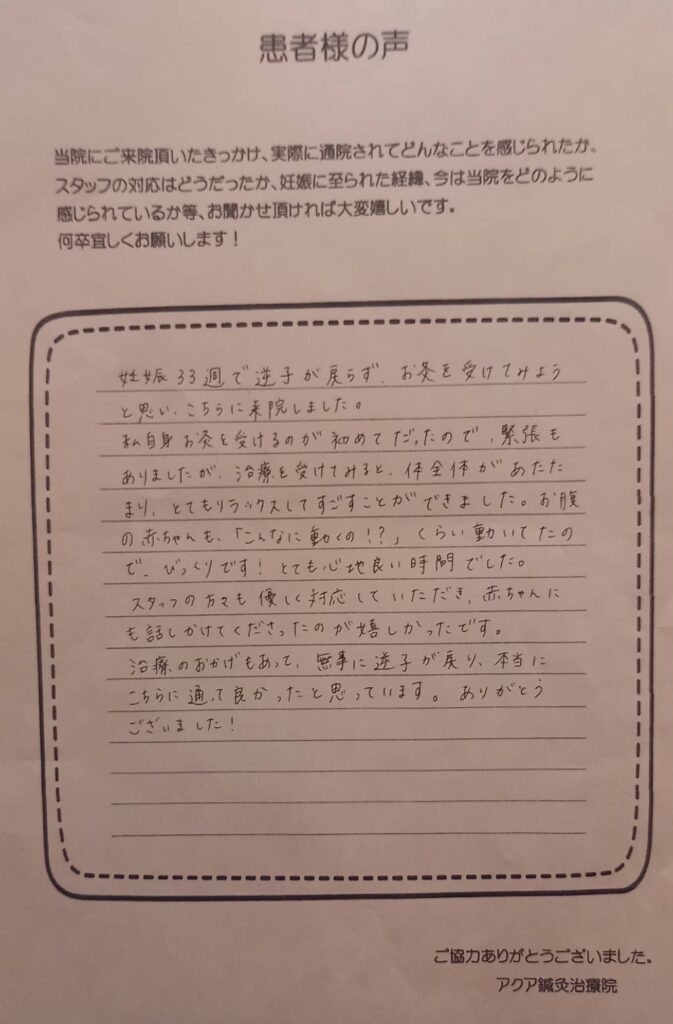 患者様の声
当院にご来院頂いたきっかけ、実際に通院されてどんなことを感じられたか、
スタッフの対応はどうだったか、妊娠に至られた経緯、今は当院をどのように
感じられているか等、お聞かせ頂ければ大変嬉しいです。
何卒宜しくお願いします！
妊娠33週で逆子が戻らず、お灸を受けてみよう
と思い、こちらに来院しました。
私自身お灸を受けるのが初めてだったので、緊張も
ありましたが、治療を受けてみると、体全体があたた
まり、とてもリラックスしてすごすことができました。お腹
の赤ちゃんも、「こんなに動くの！？」くらい動いてたの
で、びっくりです！とても心地良い時間でした。
スタッフの方々も優しく対応していただき、赤ちゃんに
も話しかけてくださったのが嬉しかったです。
治療のおかげもあって、無事に逆子が戻り、本当に
こちらに通って良かったと思っています。ありがとう
ございました！
ご協力ありがとうございました。
アクア鍼灸治療院